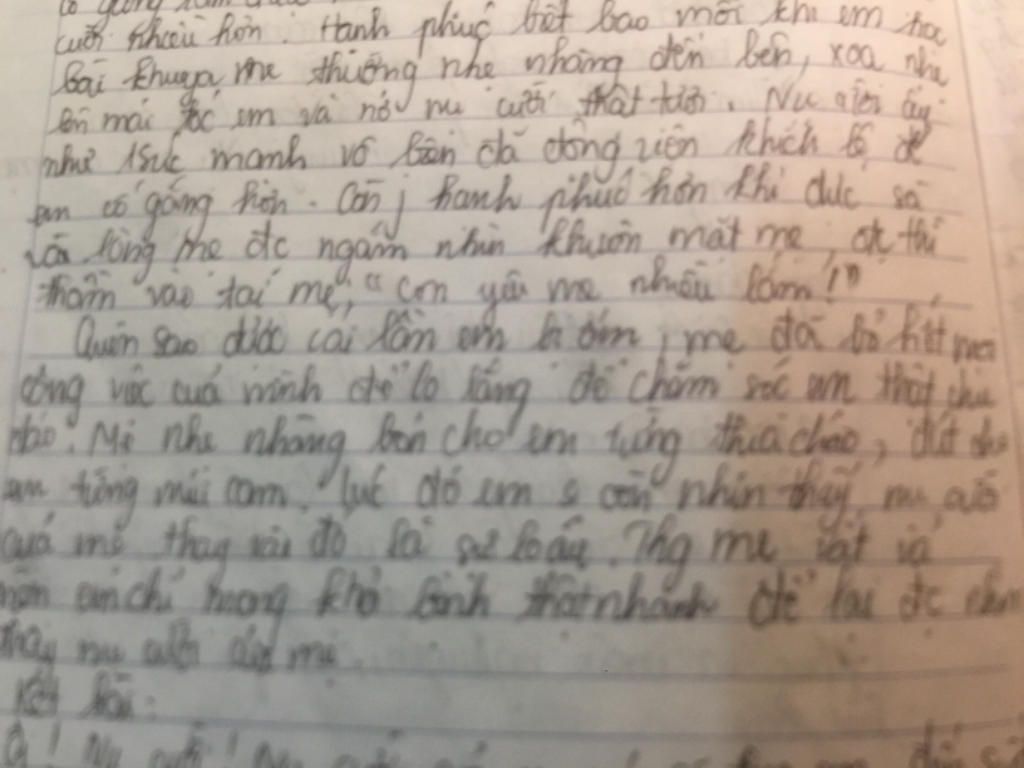 cố gắng
cười nhiều hơn. Hạnh phúc biết bao mỗi khi em học
bài khuya, mẹ thường nhẹ nhàng đến bên, xoa nhẹ
lên mái tóc em và nở nụ cười thật tươi. Nụ cười ấy
như sức mạnh vô bờ đã động viên khích lệ để
em cố gắng hơn. Còn j hạnh phúc hơn khi được sà
vào lòng mẹ đc ngắm nhìn khuôn mặt mẹ, đc thì
thầm vào tai mẹ, "con yêu mẹ nhiều lắm!"
Quên sao được cái lần em bị ốm, mẹ đã bỏ hết mọi
công việc của mình để lo lắng để chăm sóc em thật chu
đáo. Mẹ nhẹ nhàng bón cho em từng thìa cháo, đút cho
em từng múi cam. Lúc đó em còn nhìn thấy nụ cười
của mẹ thay vào đó là sự lo âu. Thg mẹ vất vả
nên em chỉ mong khỏi bệnh thật nhanh để lại đc
thấy nụ cười mẹ.
Kết bài:
Nụ cười!